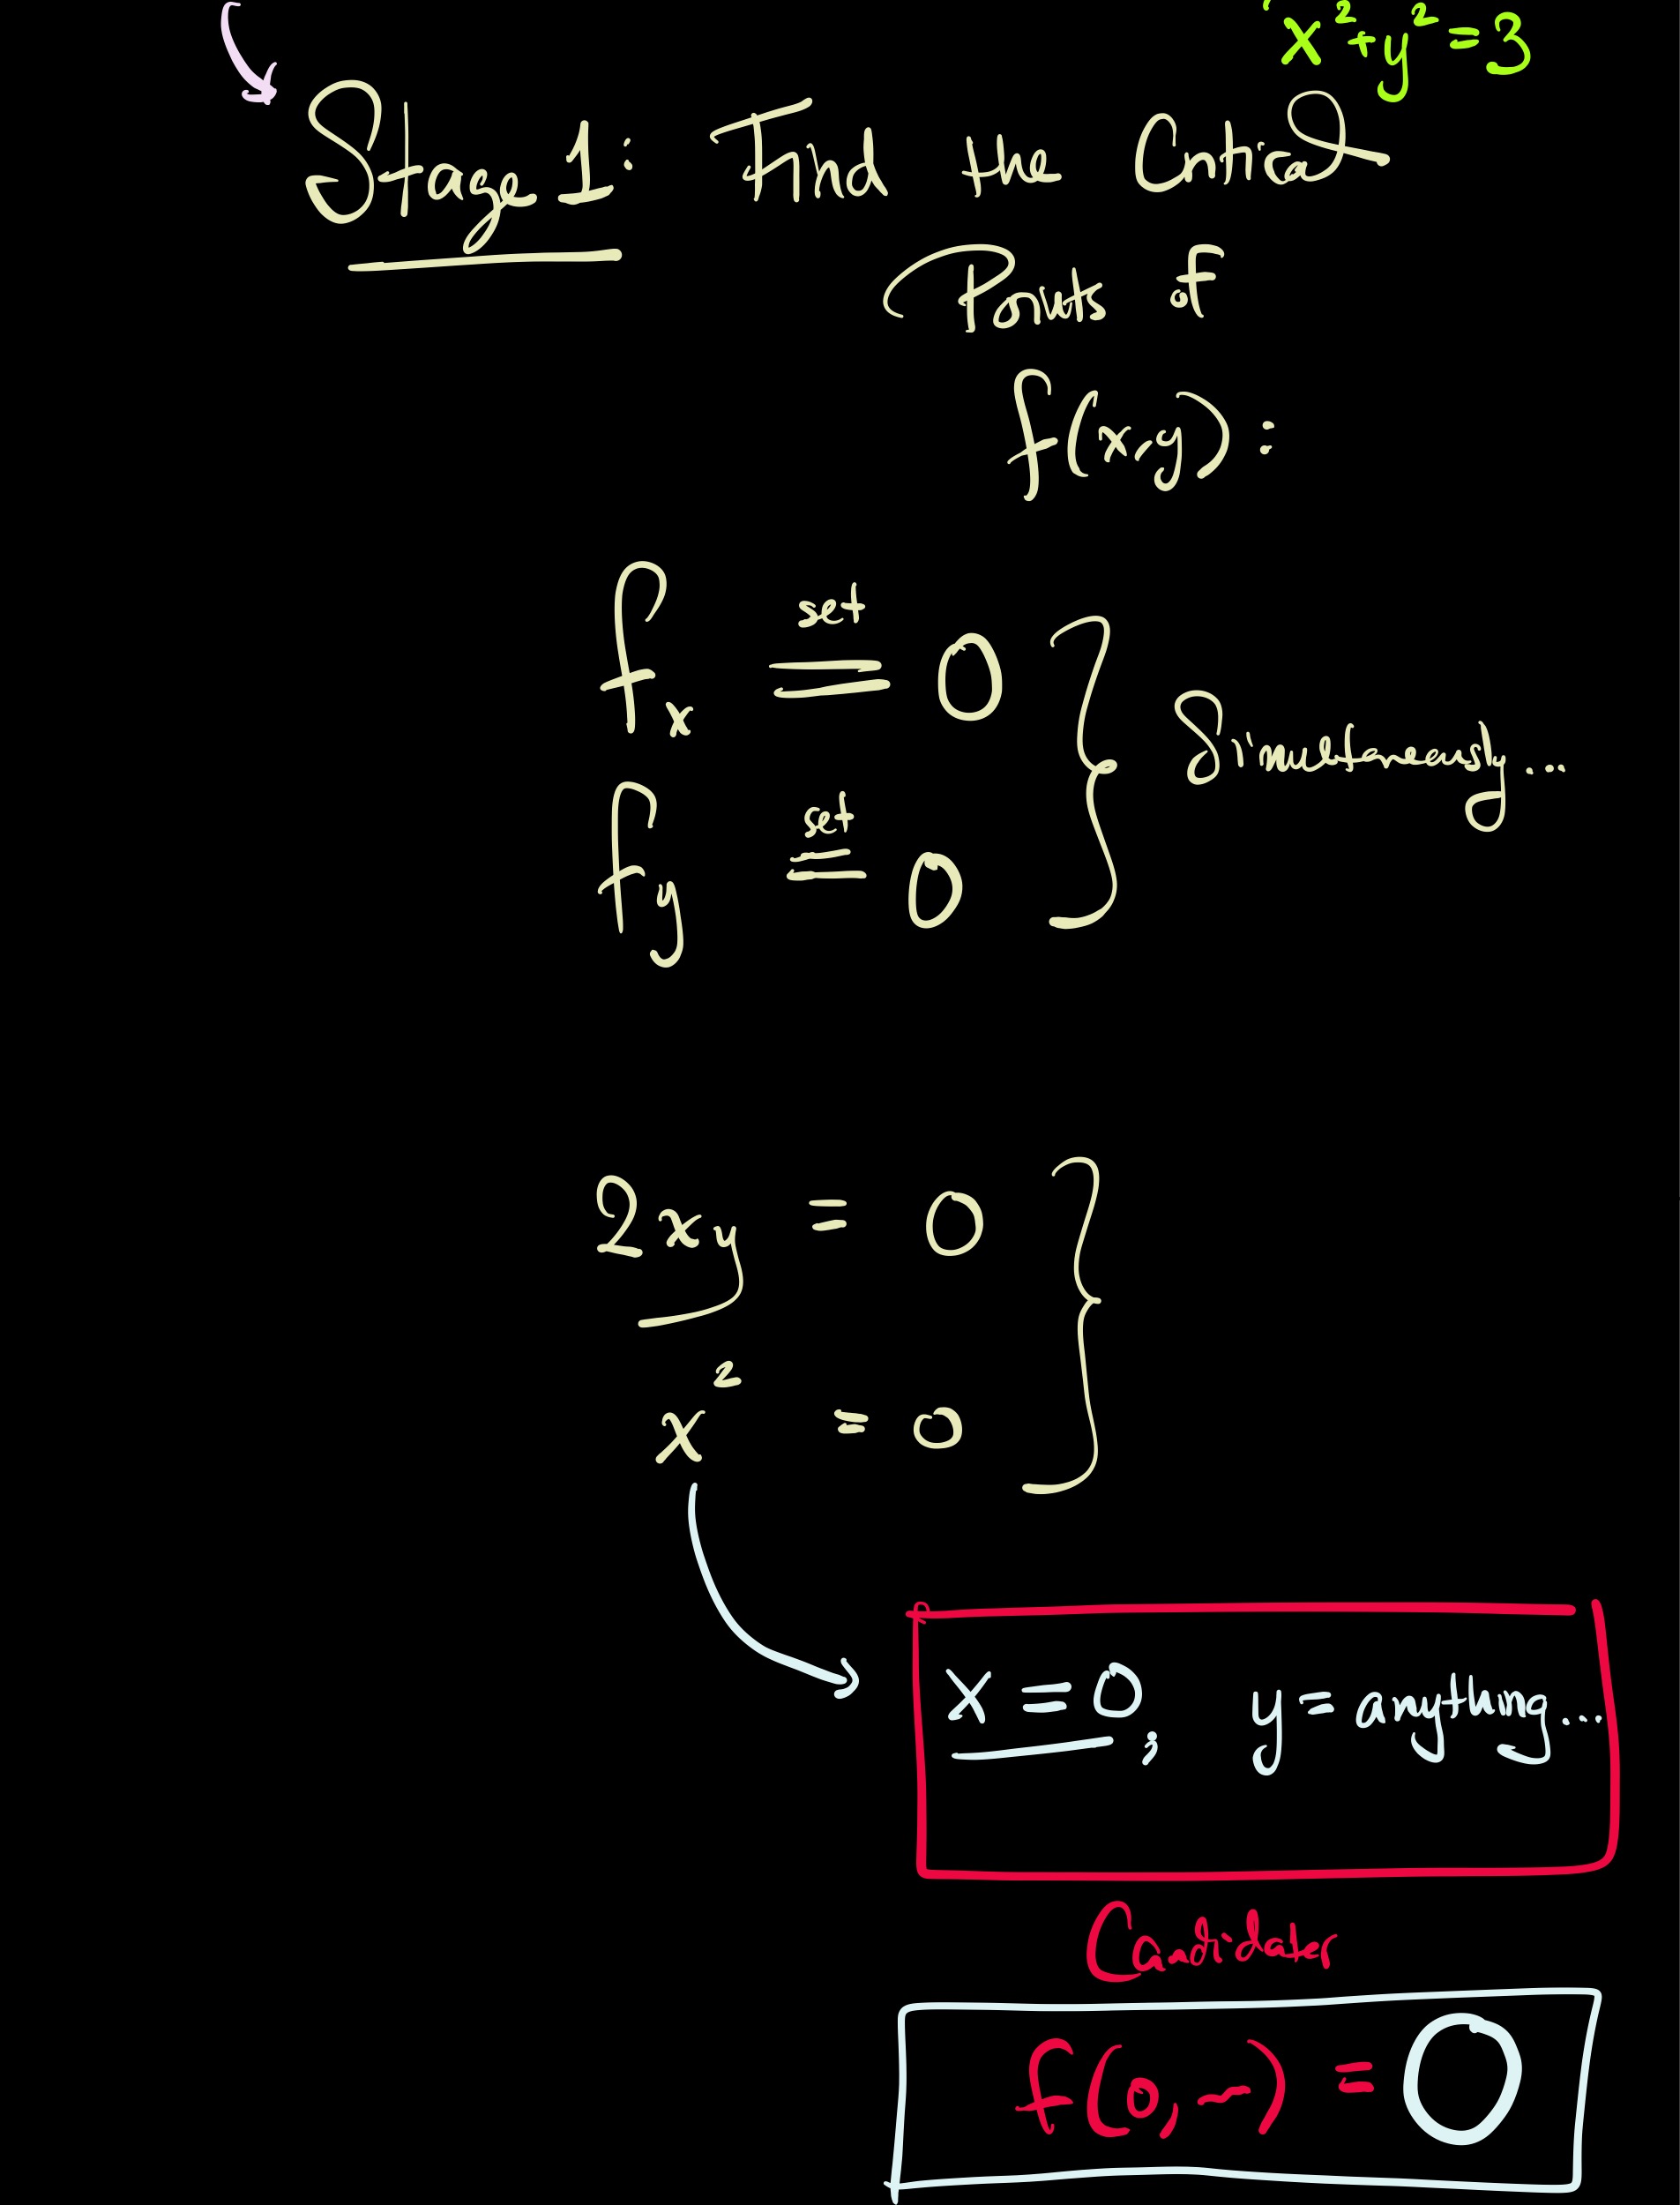 x²+y²=3
Stage 1: Find the Critical
Points of
f(x,y):
fₓ set = 0
f_y set = 0
Simultaneously...
2xy = 0
x² = 0
x = 0; y = anything...
Candidates
f(0, ~) = 0